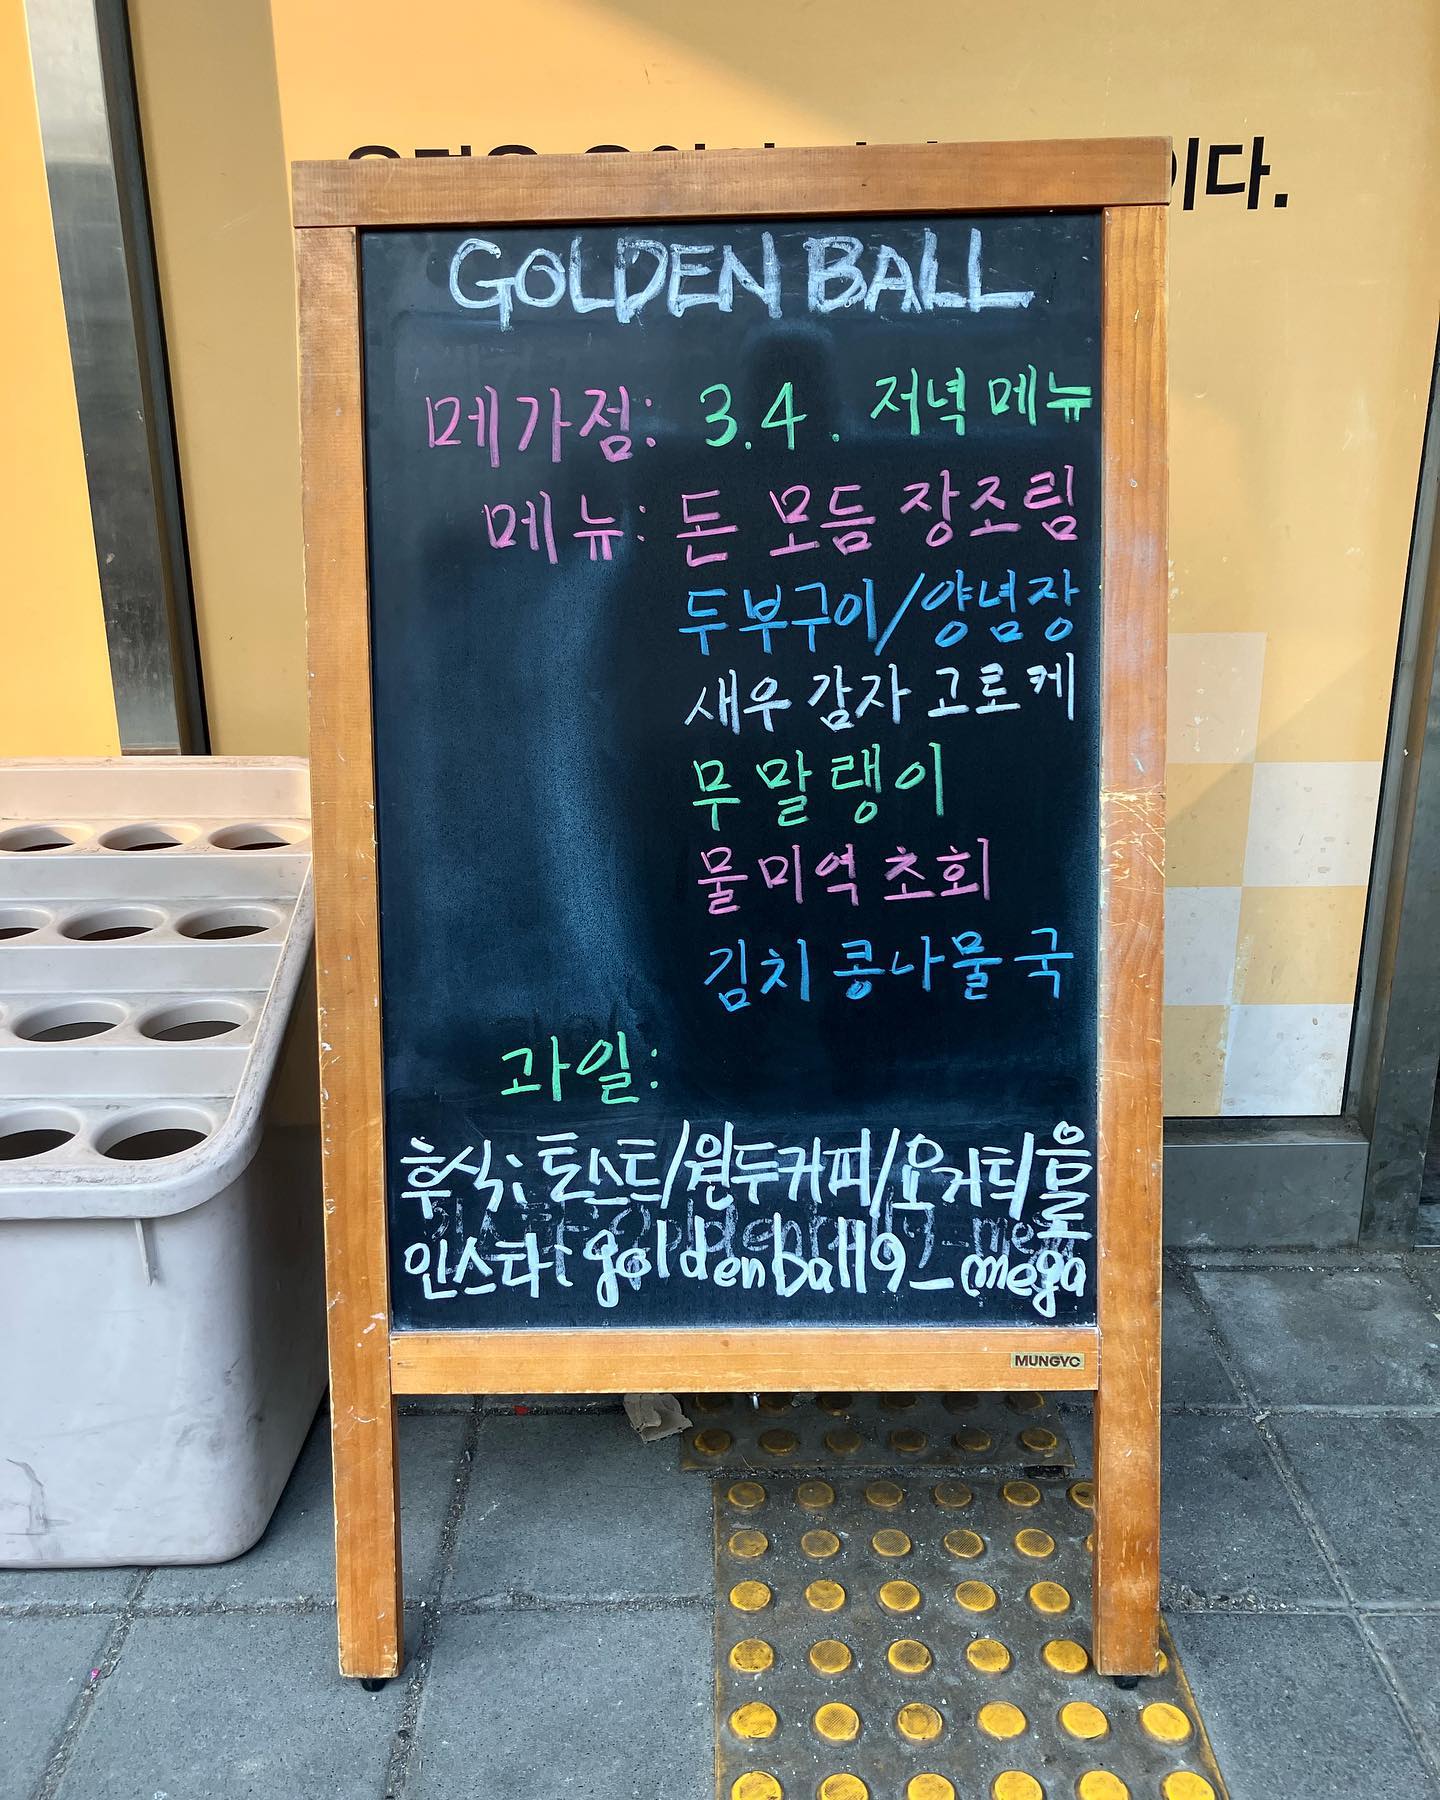 이다.
GOLDEN BALL
메가점: 3.4. 저녁 메뉴
메뉴: 돈 모듬 장조림
두부구이/양념장
새우 감자 고로케
무말랭이
물미역 초회
김치 콩나물 국
과일:
후식: 토스트/원두커피/요거트/음료
인스타: goldenball9_mega
MUNGYO